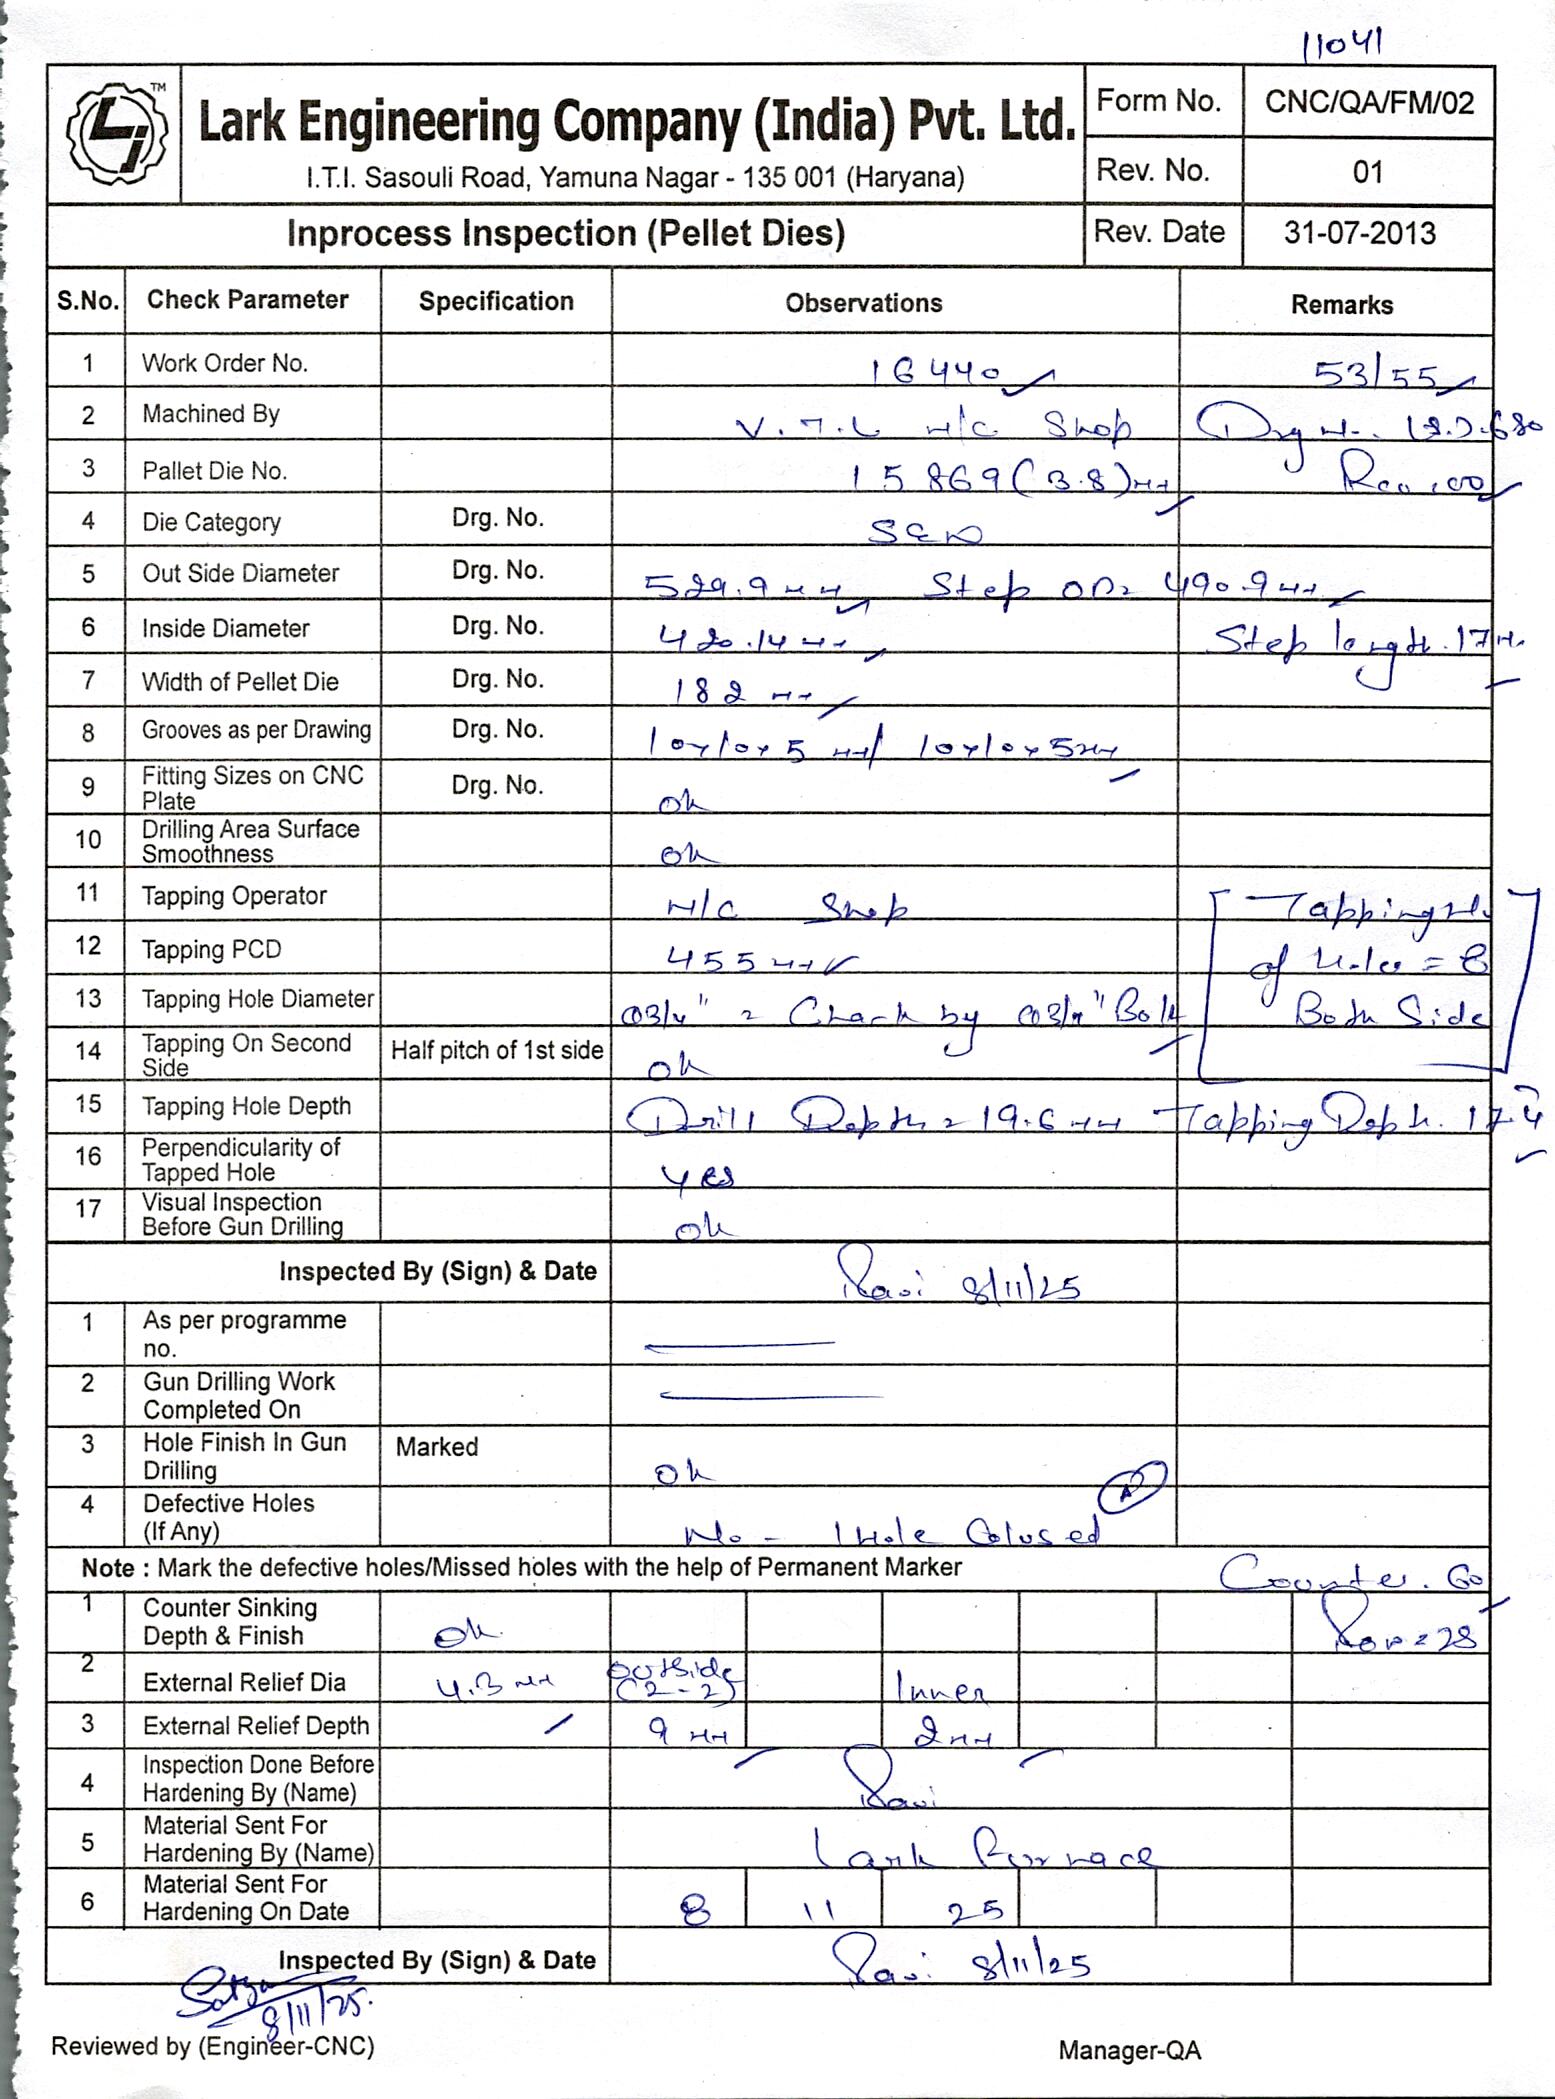 11041
TM
Lark Engineering Company (India) Pvt. Ltd.
I.T.I. Sasouli Road, Yamuna Nagar - 135 001 (Haryana)
Form No. CNC/QA/FM/02
Rev. No. 01
Inprocess Inspection (Pellet Dies) Rev. Date 31-07-2013
S.No. Check Parameter Specification Observations Remarks
1 Work Order No. 16440 53/55
2 Machined By V.T.L M/C Shop Drg
3 Pallet Die No. 15869 (3.8) mm
4 Die Category Drg. No.
5 Out Side Diameter Drg. No. 529.9 mm Step OD= 490.9 mm
6 Inside Diameter Drg. No. 420.14 mm Step length. 17 m.
7 Width of Pellet Die Drg. No. 182 mm
8 Grooves as per Drawing Drg. No. 10x10x5 mm/ 10x10x5mm
9 Fitting Sizes on CNC Plate Drg. No. ok
10 Drilling Area Surface Smoothness ok
11 Tapping Operator M/C Shop Tapping
12 Tapping PCD 455 mm of Holes = 8
13 Tapping Hole Diameter Ø3/4" = Check by Ø3/4" Bolt Both Side
14 Tapping On Second Side Half pitch of 1st side ok
15 Tapping Hole Depth Drill Depth = 19.6 mm Tapping Depth. 17.4
16 Perpendicularity of Tapped Hole yes
17 Visual Inspection Before Gun Drilling ok
Inspected By (Sign) & Date Ravi 8/11/25
1 As per programme no.
2 Gun Drilling Work Completed On
3 Hole Finish In Gun Drilling Marked ok
4 Defective Holes (If Any) No - 1 Hole Colused
Note : Mark the defective holes/Missed holes with the help of Permanent Marker Counter. 60
1 Counter Sinking Depth & Finish ok. Row = 28
2 External Relief Dia 4.3 mm outside (2-2) Inner
3 External Relief Depth 9 mm 2mm
4 Inspection Done Before Hardening By (Name) Ravi
5 Material Sent For Hardening By (Name) Lark Furnace
6 Material Sent For Hardening On Date 8 11 25
Inspected By (Sign) & Date Ravi 8/11/25
8/11/25.
Reviewed by (Engineer-CNC) Manager-QA